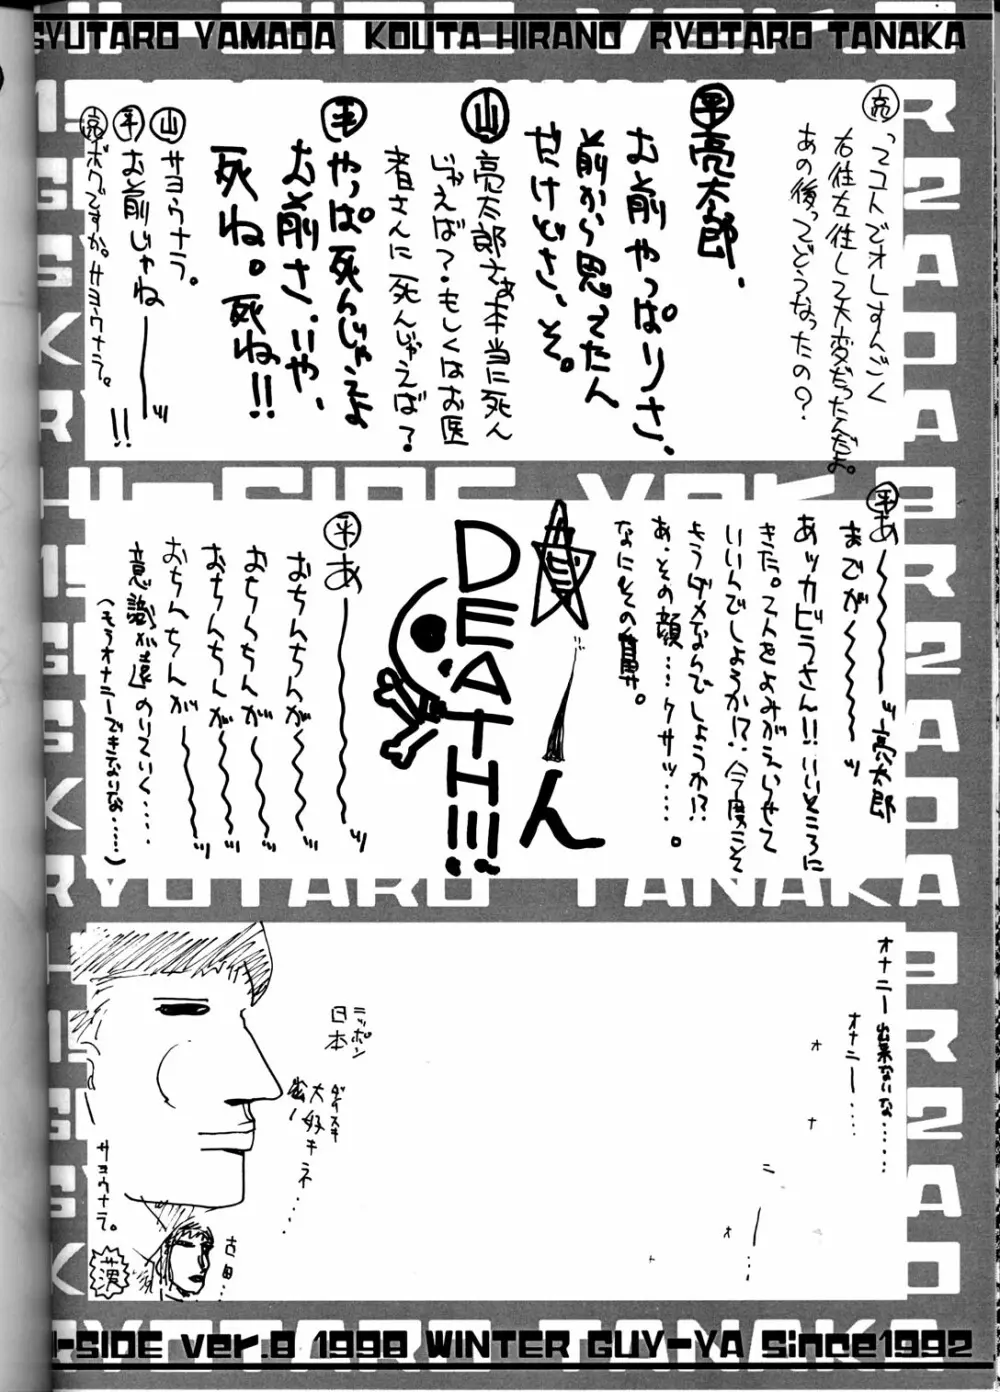 GYUTARO YAMADA KOUTA HIRANO RYOTARO TANAKA
亮 ってコトでオレすんごく
右往左往して大変だったんだよ。
あの後ってどうなったの?
平 亮太郎、
お前やっぱりさ、
前から思ってたん
だけどさ、そ。
山 亮太郎さぁ本当に死ん
じゃえば?もしくはお医
者さんに死んじゃえば?
平 やっぱ死んじゃえよ
お前さ、いや、
死ね。死ね!!
山 サヨウナラ。
平 お前じゃねーーーッ!!
亮 ボクですか。サヨウナラ。
平 あ〜〜〜〜ッ亮太郎
までが〜〜〜〜ッ
あッカビラさん!!いいところに
きた。2人をよみがえらせて
いいんでしょうか!?今度こそ
もうダメなんでしょうか!?
あ、その顔…クサッ……。
なにその
ん
DEATH!!!
平 あ――――〜〜ッ
おちんちんが〜〜〜ッ
おちんちんが〜〜〜ッ
おちんちんが〜〜〜ッ
おちんちんが〜〜〜ッ
意識が遠のいていく……
(もうオナニーできないな……)
オナニー出来ないな……
オナニー……
オ
ナ
ニ
ー
オ
…
ニッポン
日本
ダイスキ
大好キネ…
サヨウナラ。
古田…
H-SIDE ver.8 1998 WINTER GUY-YA Since1992